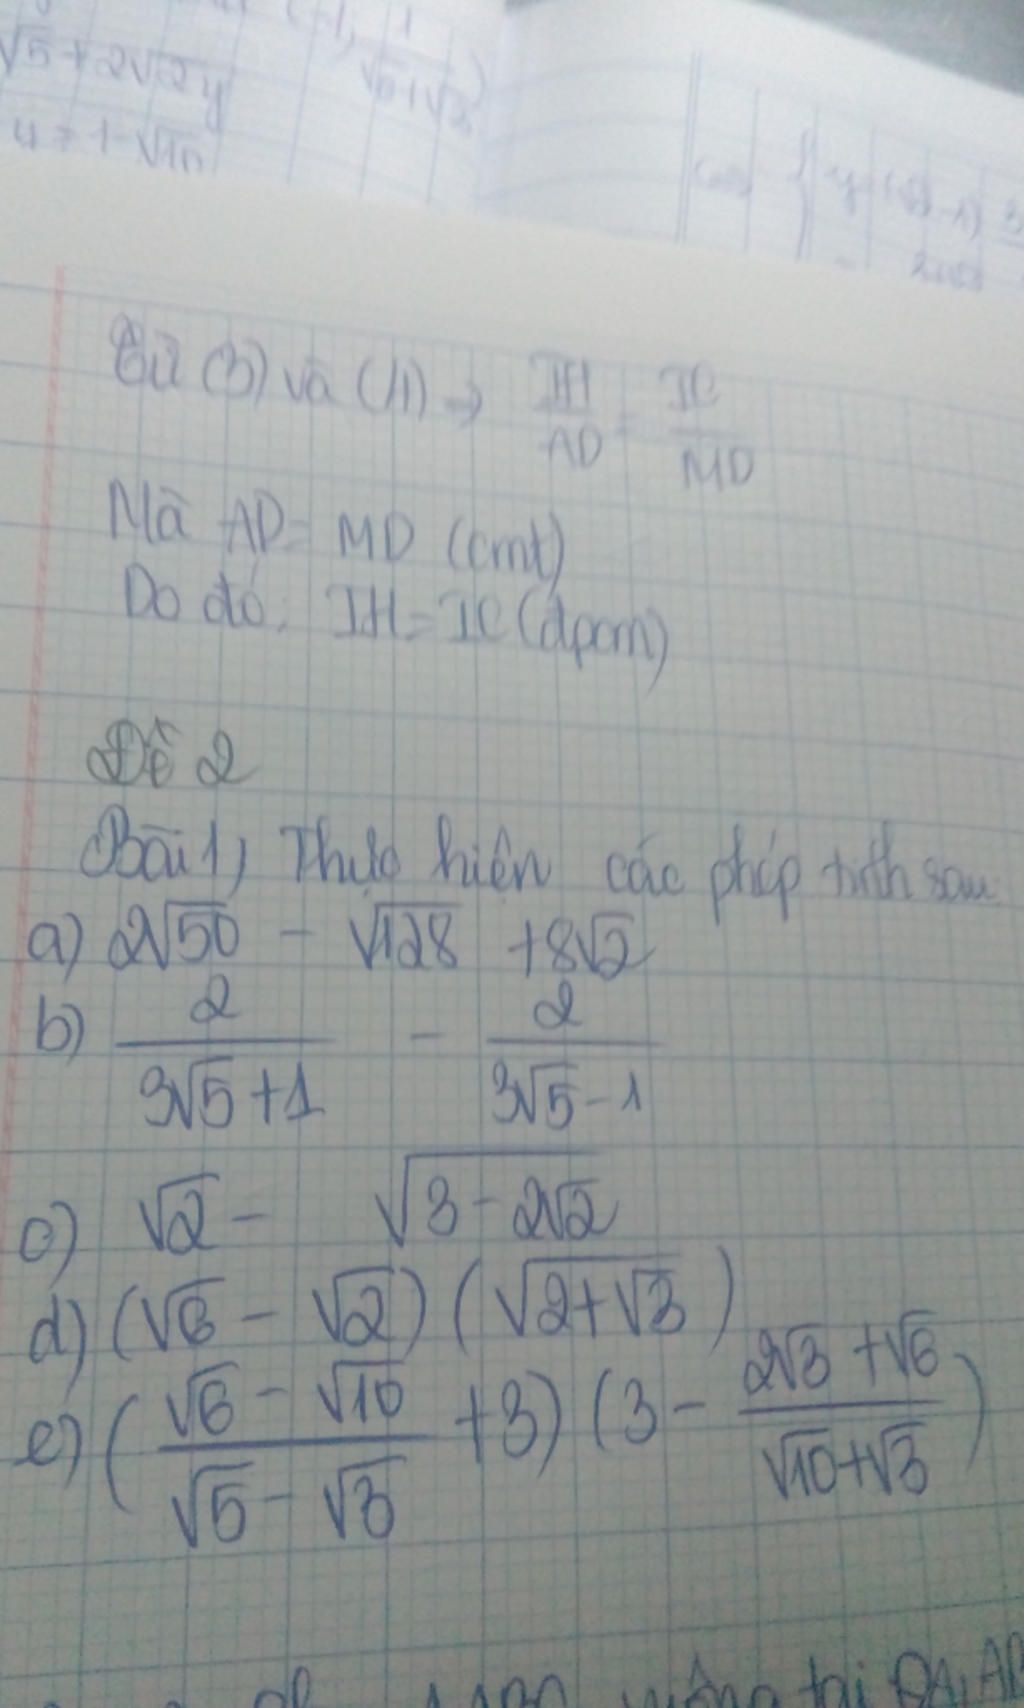 √5 + 2√2y
y = 1 - √10
Từ (3) và (11) → IH/AD = IC/MD
Mà AD = MD (cmt)
Do đó: IH = IC (đpcm)
Đề 2
Bài 1, Thực hiện các phép tính sau
a) 2√50 - √128 + 8√2
b) 2/(3√5 + 1) - 2/(3√5 - 1)
c) √2 - √(3 - 2√2)
d) (√6 - √2) (√(2 + √3))
e) ((√6 - √10)/(√5 - √3) + 3) (3 - (2√3 + √6)/(√10 + √3))